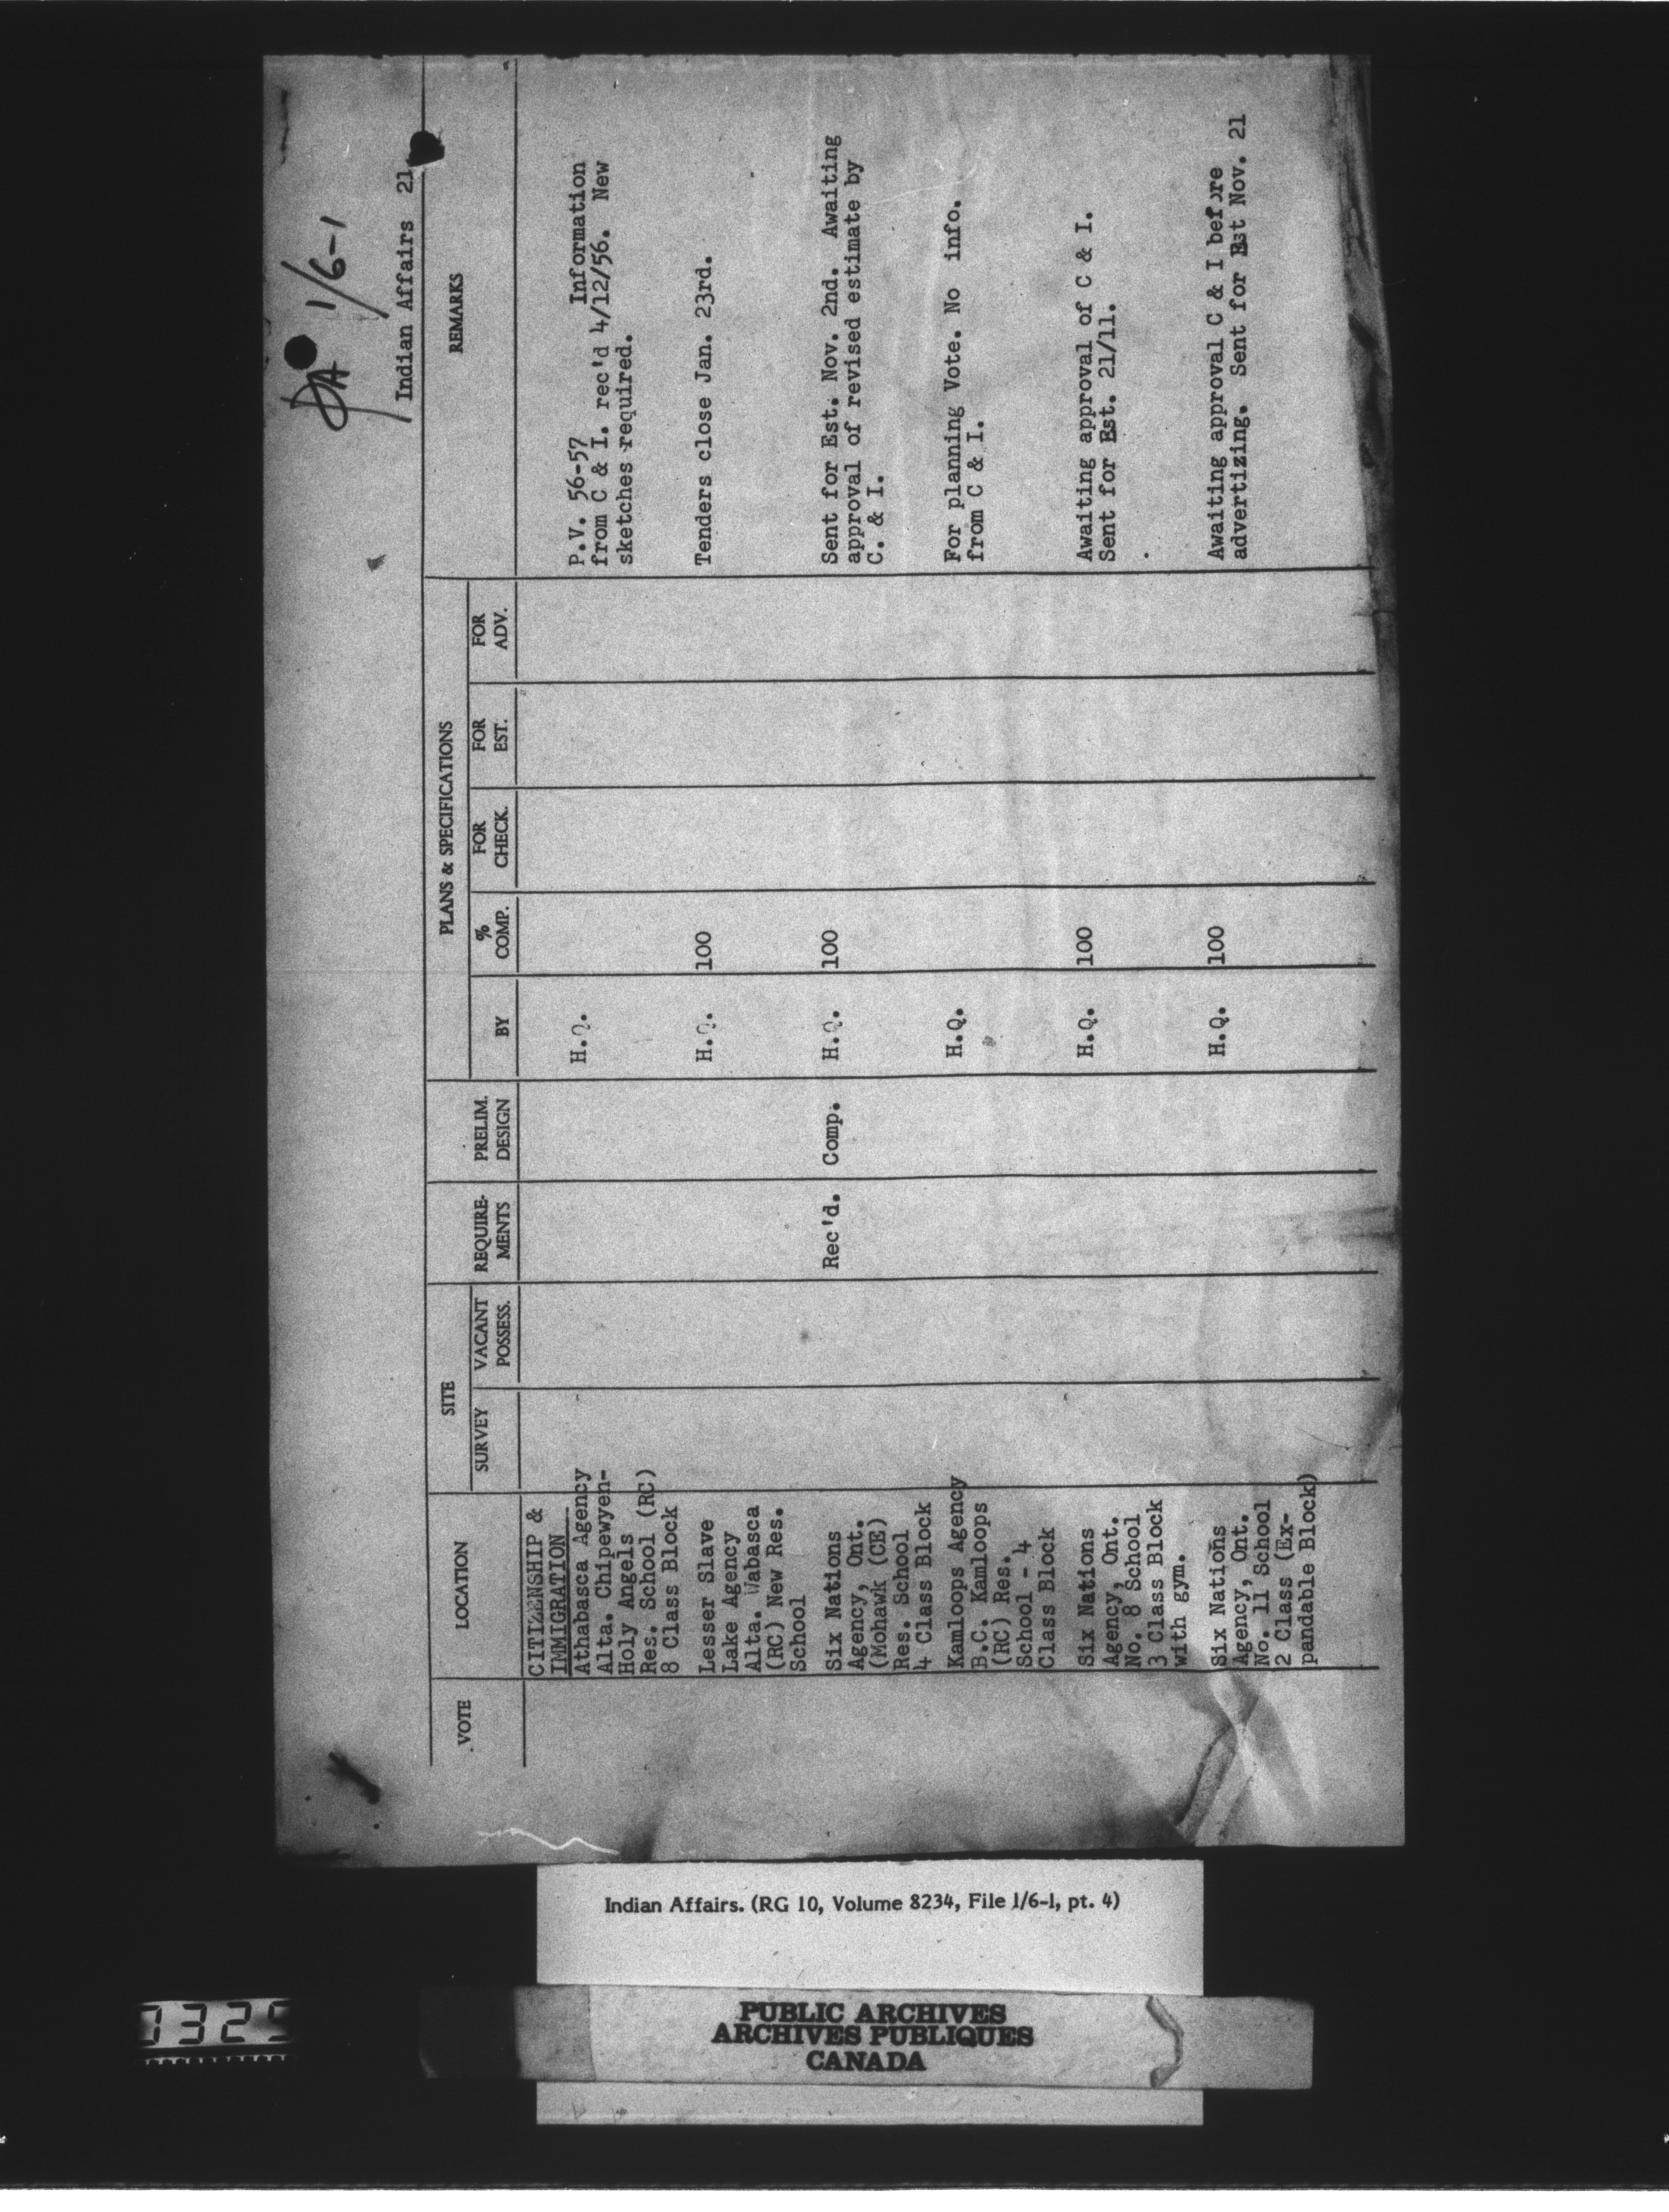 DA 1/6-1
Indian Affairs 21
VOTE LOCATION SITE REQUIRE-MENTS PRELIM. DESIGN PLANS & SPECIFICATIONS REMARKS
SURVEY VACANT POSSESS. BY % COMP. FOR CHECK. FOR EST. FOR ADV.
CITIZENSHIP &
IMMIGRATION
Athabasca Agency H.Q. P.V. 56-57 Information
Alta. Chipewyen- from C & I. rec'd 4/12/56. New
Holy Angels sketches required.
Res. School (RC)
8 Class Block
Lesser Slave H.Q. 100 Tenders close Jan. 23rd.
Lake Agency
Alta. Wabasca
(RC) New Res.
School
Six Nations Rec'd. Comp. H.Q. 100 Sent for Est. Nov. 2nd. Awaiting
Agency, Ont. approval of revised estimate by
(Mohawk (CE) C. & I.
Res. School
4 Class Block
Kamloops Agency H.Q. For planning Vote. No info.
B.C. Kamloops from C & I.
(RC) Res.
School - 4
Class Block
Six Nations H.Q. 100 Awaiting approval of C & I.
Agency, Ont. Sent for Est. 21/11.
No. 8 School
3 Class Block
with gym.
Six Nations H.Q. 100 Awaiting approval C & I before
Agency, Ont. advertizing. Sent for Est Nov. 21
No. 11 School
2 Class (Ex-
pandable Block)
Indian Affairs. (RG 10, Volume 8234, File 1/6-1, pt. 4)
PUBLIC ARCHIVES
ARCHIVES PUBLIQUES
CANADA